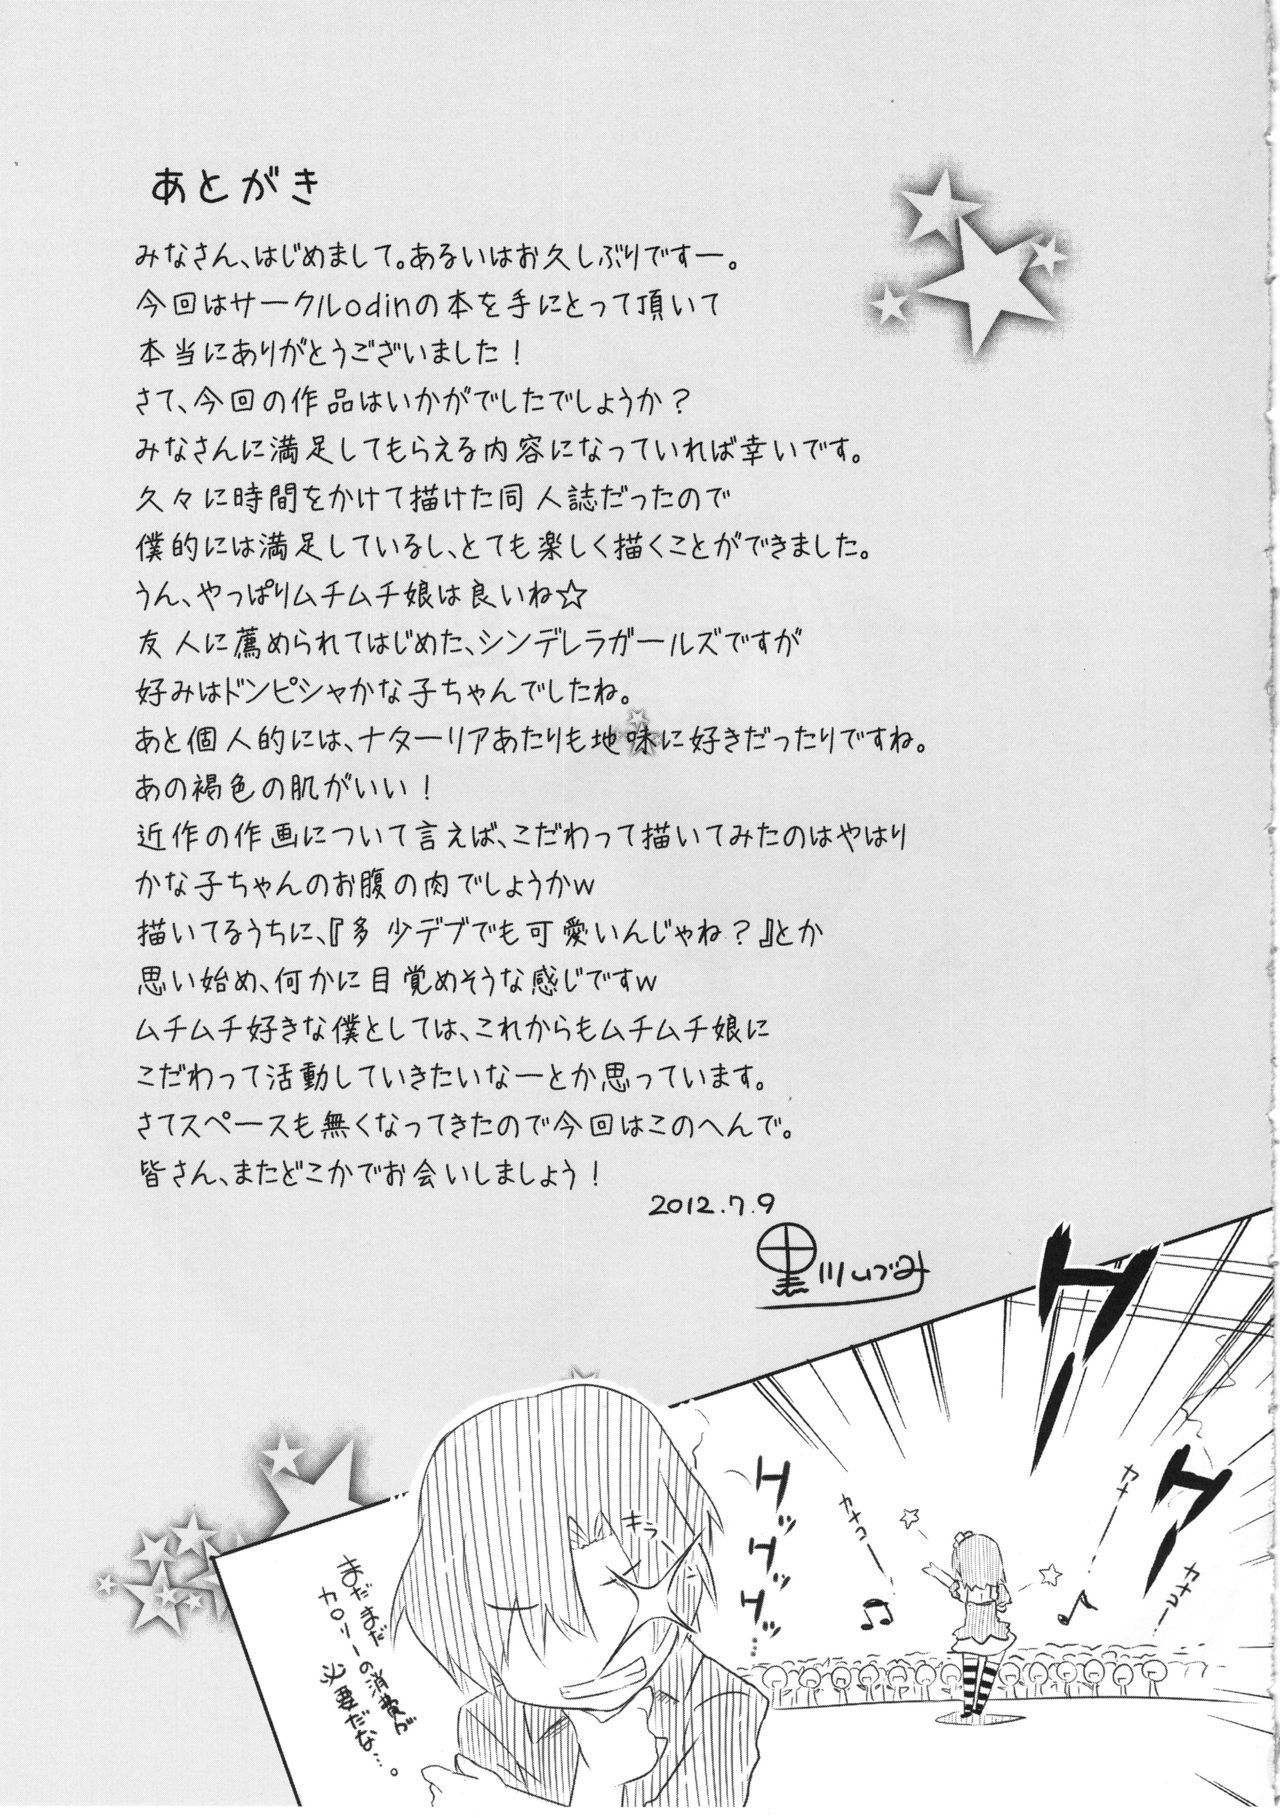 あとがき
みなさん、はじめまして。あるいはお久しぶりですー。
今回はサークルodinの本を手にとって頂いて
本当にありがとうございました！
さて、今回の作品はいかがでしたでしょうか？
みなさんに満足してもらえる内容になっていれば幸いです。
久々に時間をかけて描けた同人誌だったので
僕的には満足しているし、とても楽しく描くことができました。
うん、やっぱりムチムチ娘は良いね☆
友人に薦められてはじめた、シンデレラガールズですが
好みはドンピシャかな子ちゃんでしたね。
あと個人的には、ナターリアあたりも地味に好きだったりですね。
あの褐色の肌がいい！
近作の作画について言えば、こだわって描いてみたのはやはり
かな子ちゃんのお腹の肉でしょうかw
描いてるうちに、『多少デブでも可愛いんじゃね？』とか
思い始め、何かに目覚めそうな感じですw
ムチムチ好きな僕としては、これからもムチムチ娘に
こだわって活動していきたいなーとか思っています。
さてスペースも無くなってきたので今回はこのへんで。
皆さん、またどこかでお会いしましょう！
2012.7.9
黒川いづみ
カナコー
カナコー
キラーン
まだまだ
カロリーの消費が
必要だな…。